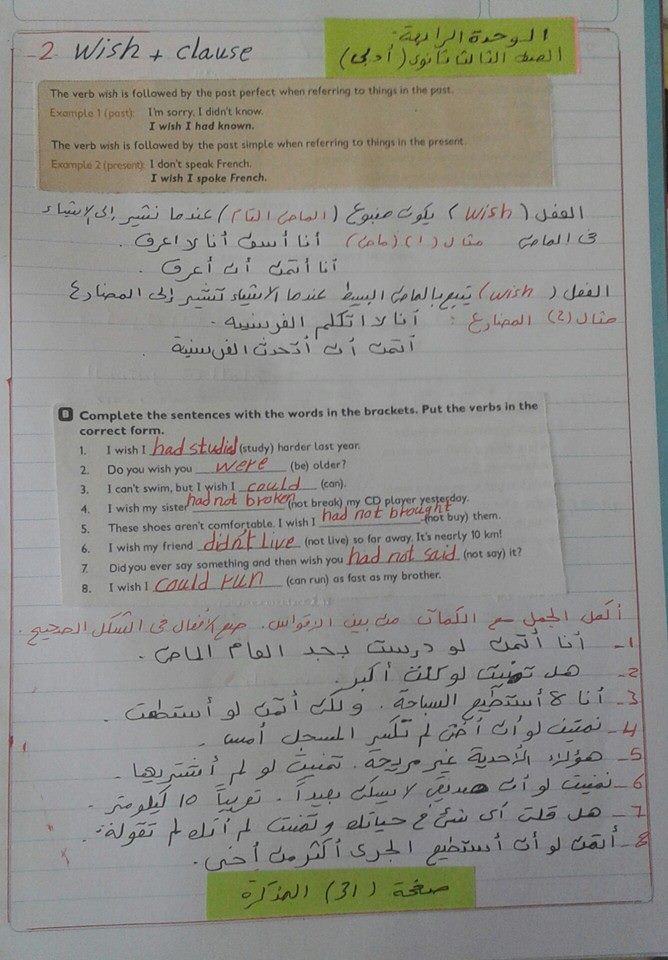 الوحدة الرابعة
الصف الثالث ثانوي (أدبي)
2 Wish + clause
The verb wish is followed by the past perfect when referring to things in the past.
Example 1 (past): I'm sorry. I didn't know.
I wish I had known.
The verb wish is followed by the past simple when referring to things in the present.
Example 2 (present): I don't speak French.
I wish I spoke French.
الفعل (wish) يكون متبوع (الماضي التام) عندما نشير إلى الاشياء
في الماضي مثال (1) (ماضي) أنا أسف أنا لا اعرف .
أنا أتمنى أن أعرف .
الفعل (wish) يتبع بالماضي البسيط عندما الاشياء تشير إلى المضارع
مثال (2) المضارع : أنا لا اتكلم الفرنسيه .
أتمنى أن أتحدث الفرنسية
D Complete the sentences with the words in the brackets. Put the verbs in the
correct form.
1. I wish I had studied (study) harder last year.
2. Do you wish you were (be) older?
3. I can't swim, but I wish I could (can).
4. I wish my sister had not broken (not break) my CD player yesterday.
5. These shoes aren't comfortable. I wish I had not brought (not buy) them.
6. I wish my friend didn't live (not live) so far away. It's nearly 10 km!
7. Did you ever say something and then wish you had not said (not say) it?
8. I wish I could run (can run) as fast as my brother.
أكمل الجمل مع الكلمات من بين الاقواس. ضع الأفعال في الشكل الصحيح .
1- أنا أتمنى لو درست بجد العام الماضي .
2- هل تمنيت لو كنت أكبر .
3- أنا لا أستطيع السباحة . ولكن أتمنى لو أستطعت .
4- تمنيت لو أن أختي لم تكسر المسجل أمس .
5- هؤلاء الأحذية غير مريحة . تمنيت لو لم أشتريها .
6- تمنيت لو أن صديقي لا يسكن بعيداً . تقريباً 10 كيلومتر .
7- هل قلت أي شئ في حياتك وتمنيت لو أنك لم تقولة .
8- أتمنى لو أن أستطيع الجري أكثر من أخي .
صفحة (31) المذكرة